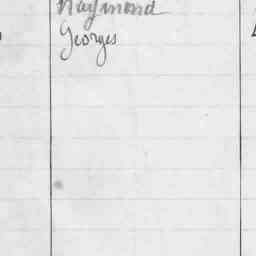 Raymond
Georges